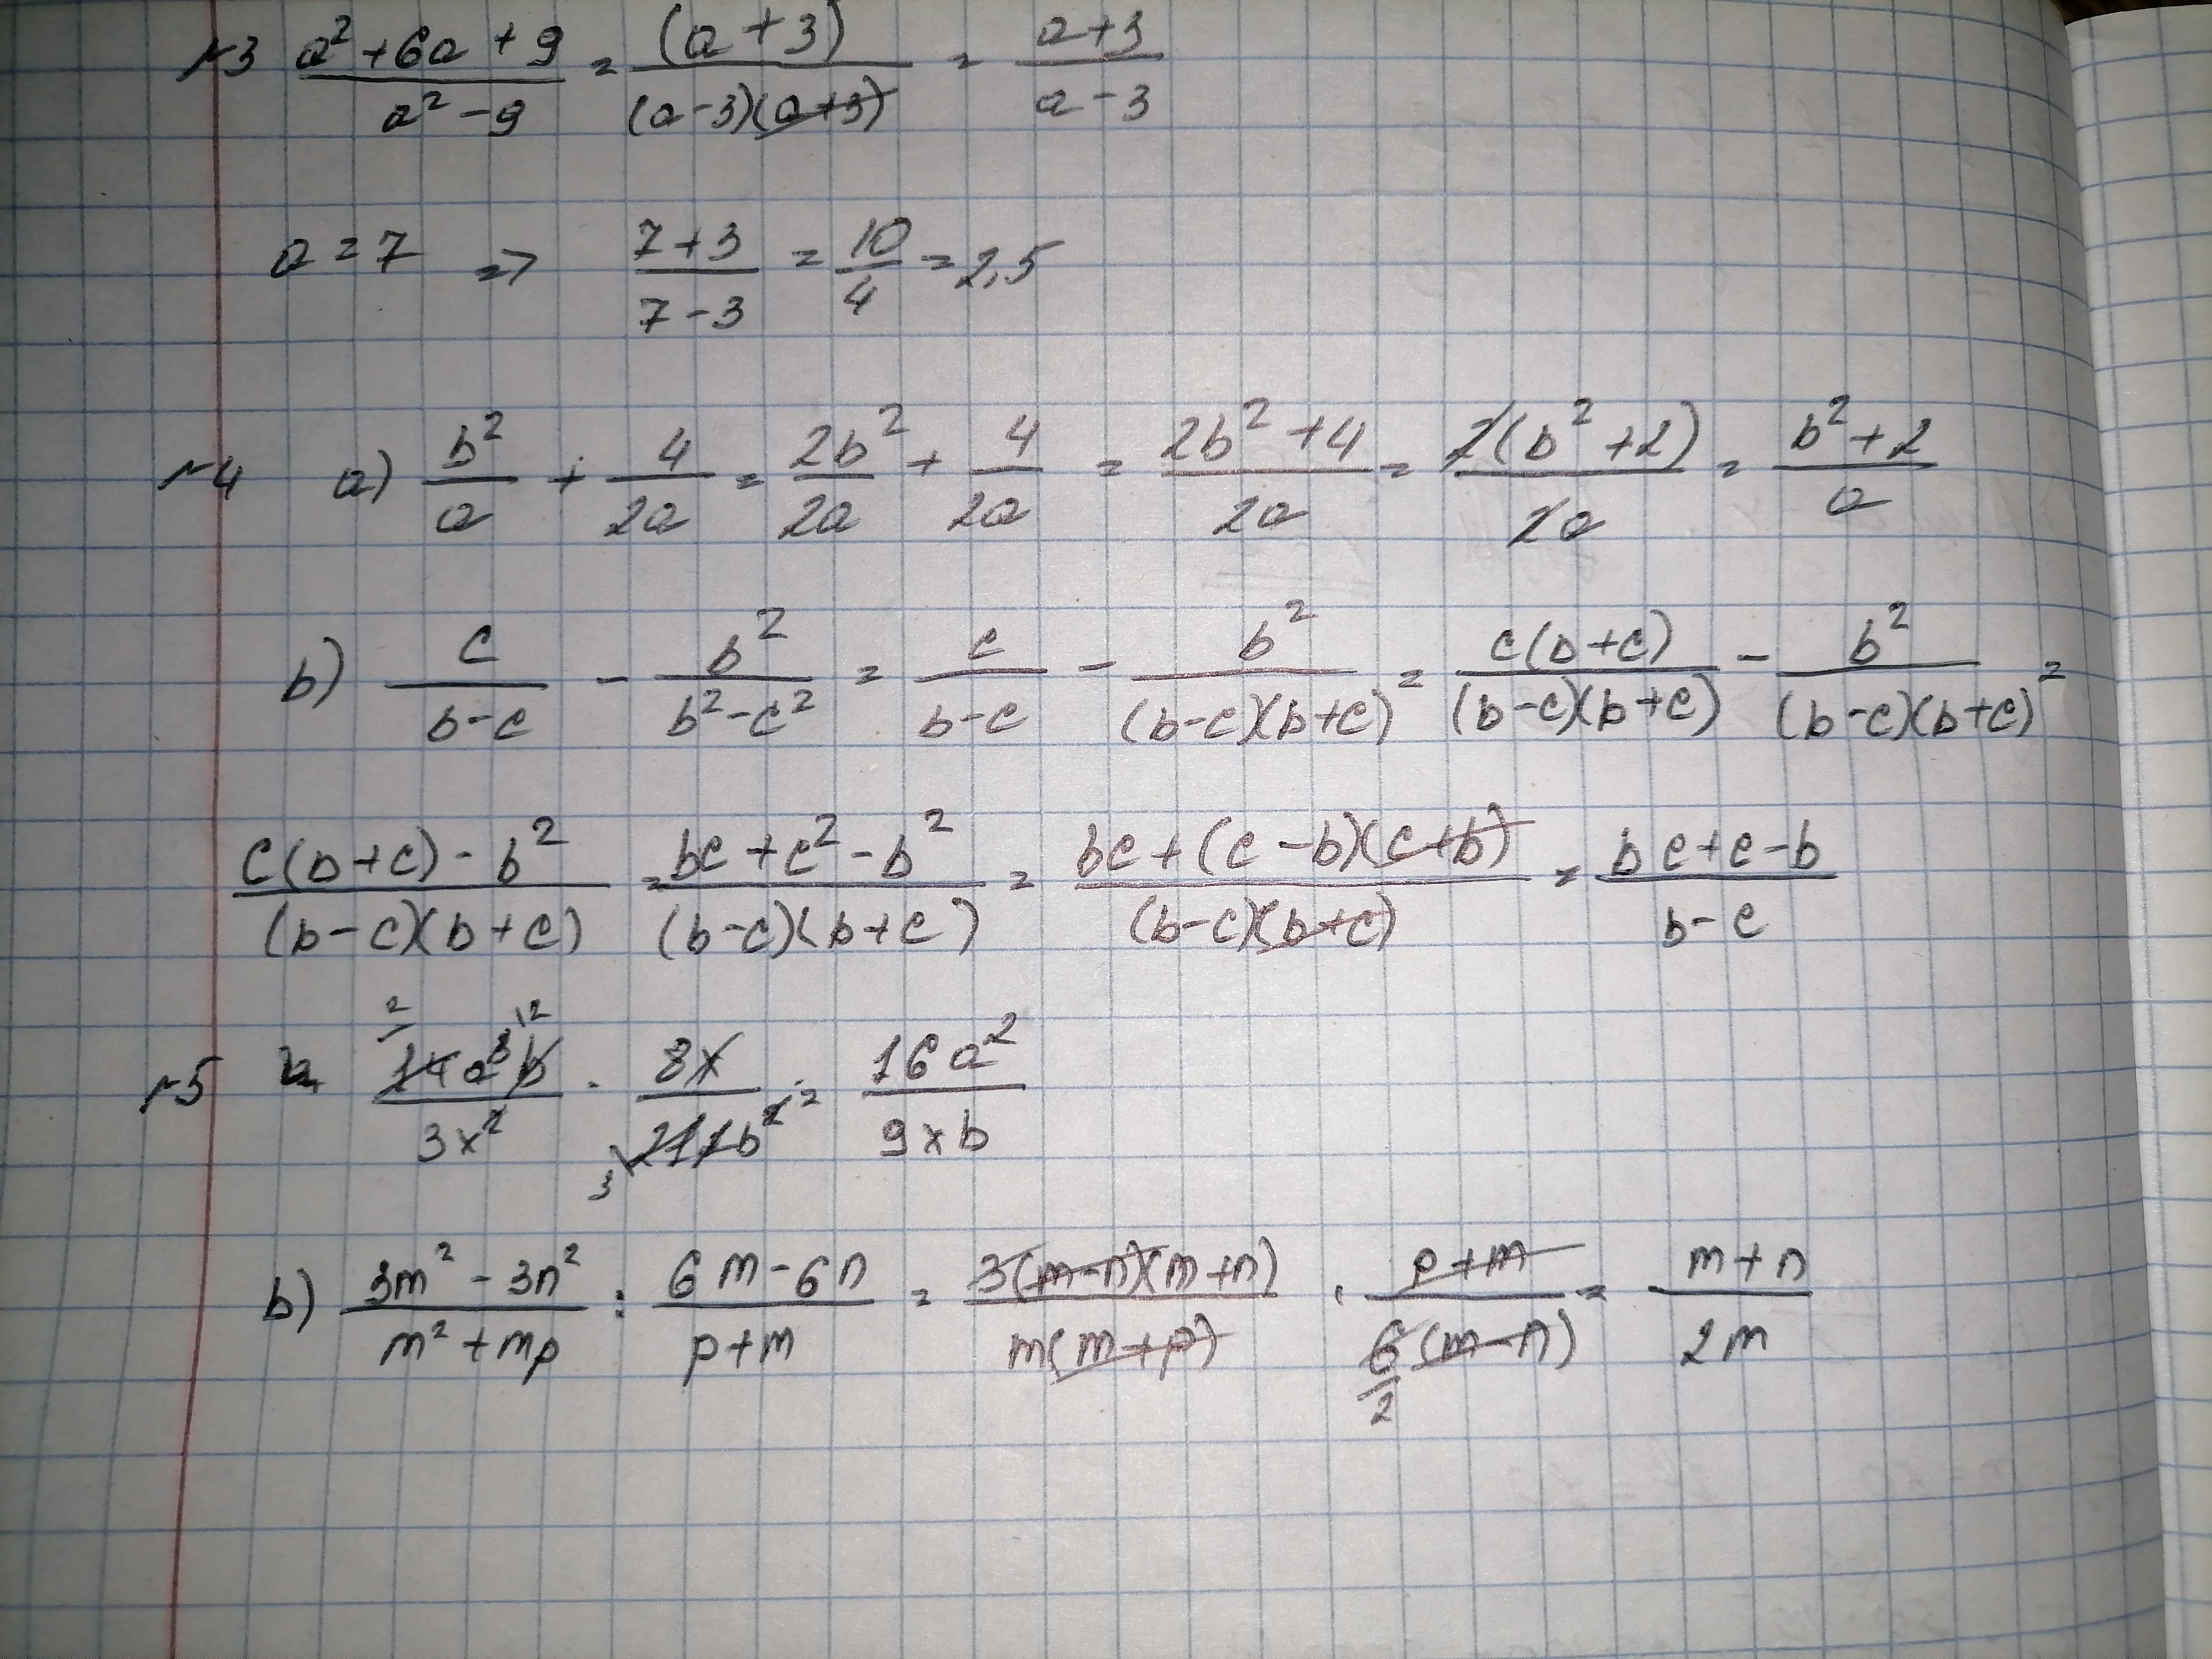 №3 (a²+6a+9)/(a²-9) = (a+3)/((a-3)(a+3)) = (a+3)/(a-3)
a=7 => (7+3)/(7-3) = 10/4 = 2,5
№4 a) b²/a + 4/2a = 2b²/2a + 4/2a = (2b²+4)/2a = 2(b²+2)/2a = (b²+2)/a
b) c/(b-c) - b²/(b²-c²) = c/(b-c) - b²/((b-c)(b+c)) = c(b+c)/((b-c)(b+c)) - b²/((b-c)(b+c)) =
(c(b+c)-b²)/((b-c)(b+c)) = (bc+c²-b²)/((b-c)(b+c)) = (bc+(c-b)(c+b))/((b-c)(b+c)) = (bc+c-b)/(b-c)
№5 14a b/3x² · 8x/21 b² = 16a²/9xb
b) (3m²-3n²)/(m²+mp) : (6m-6n)/(p+m) = 3(m-n)(m+n)/(m(m+p)) · (p+m)/(6(m-n)) = (m+n)/2m
2